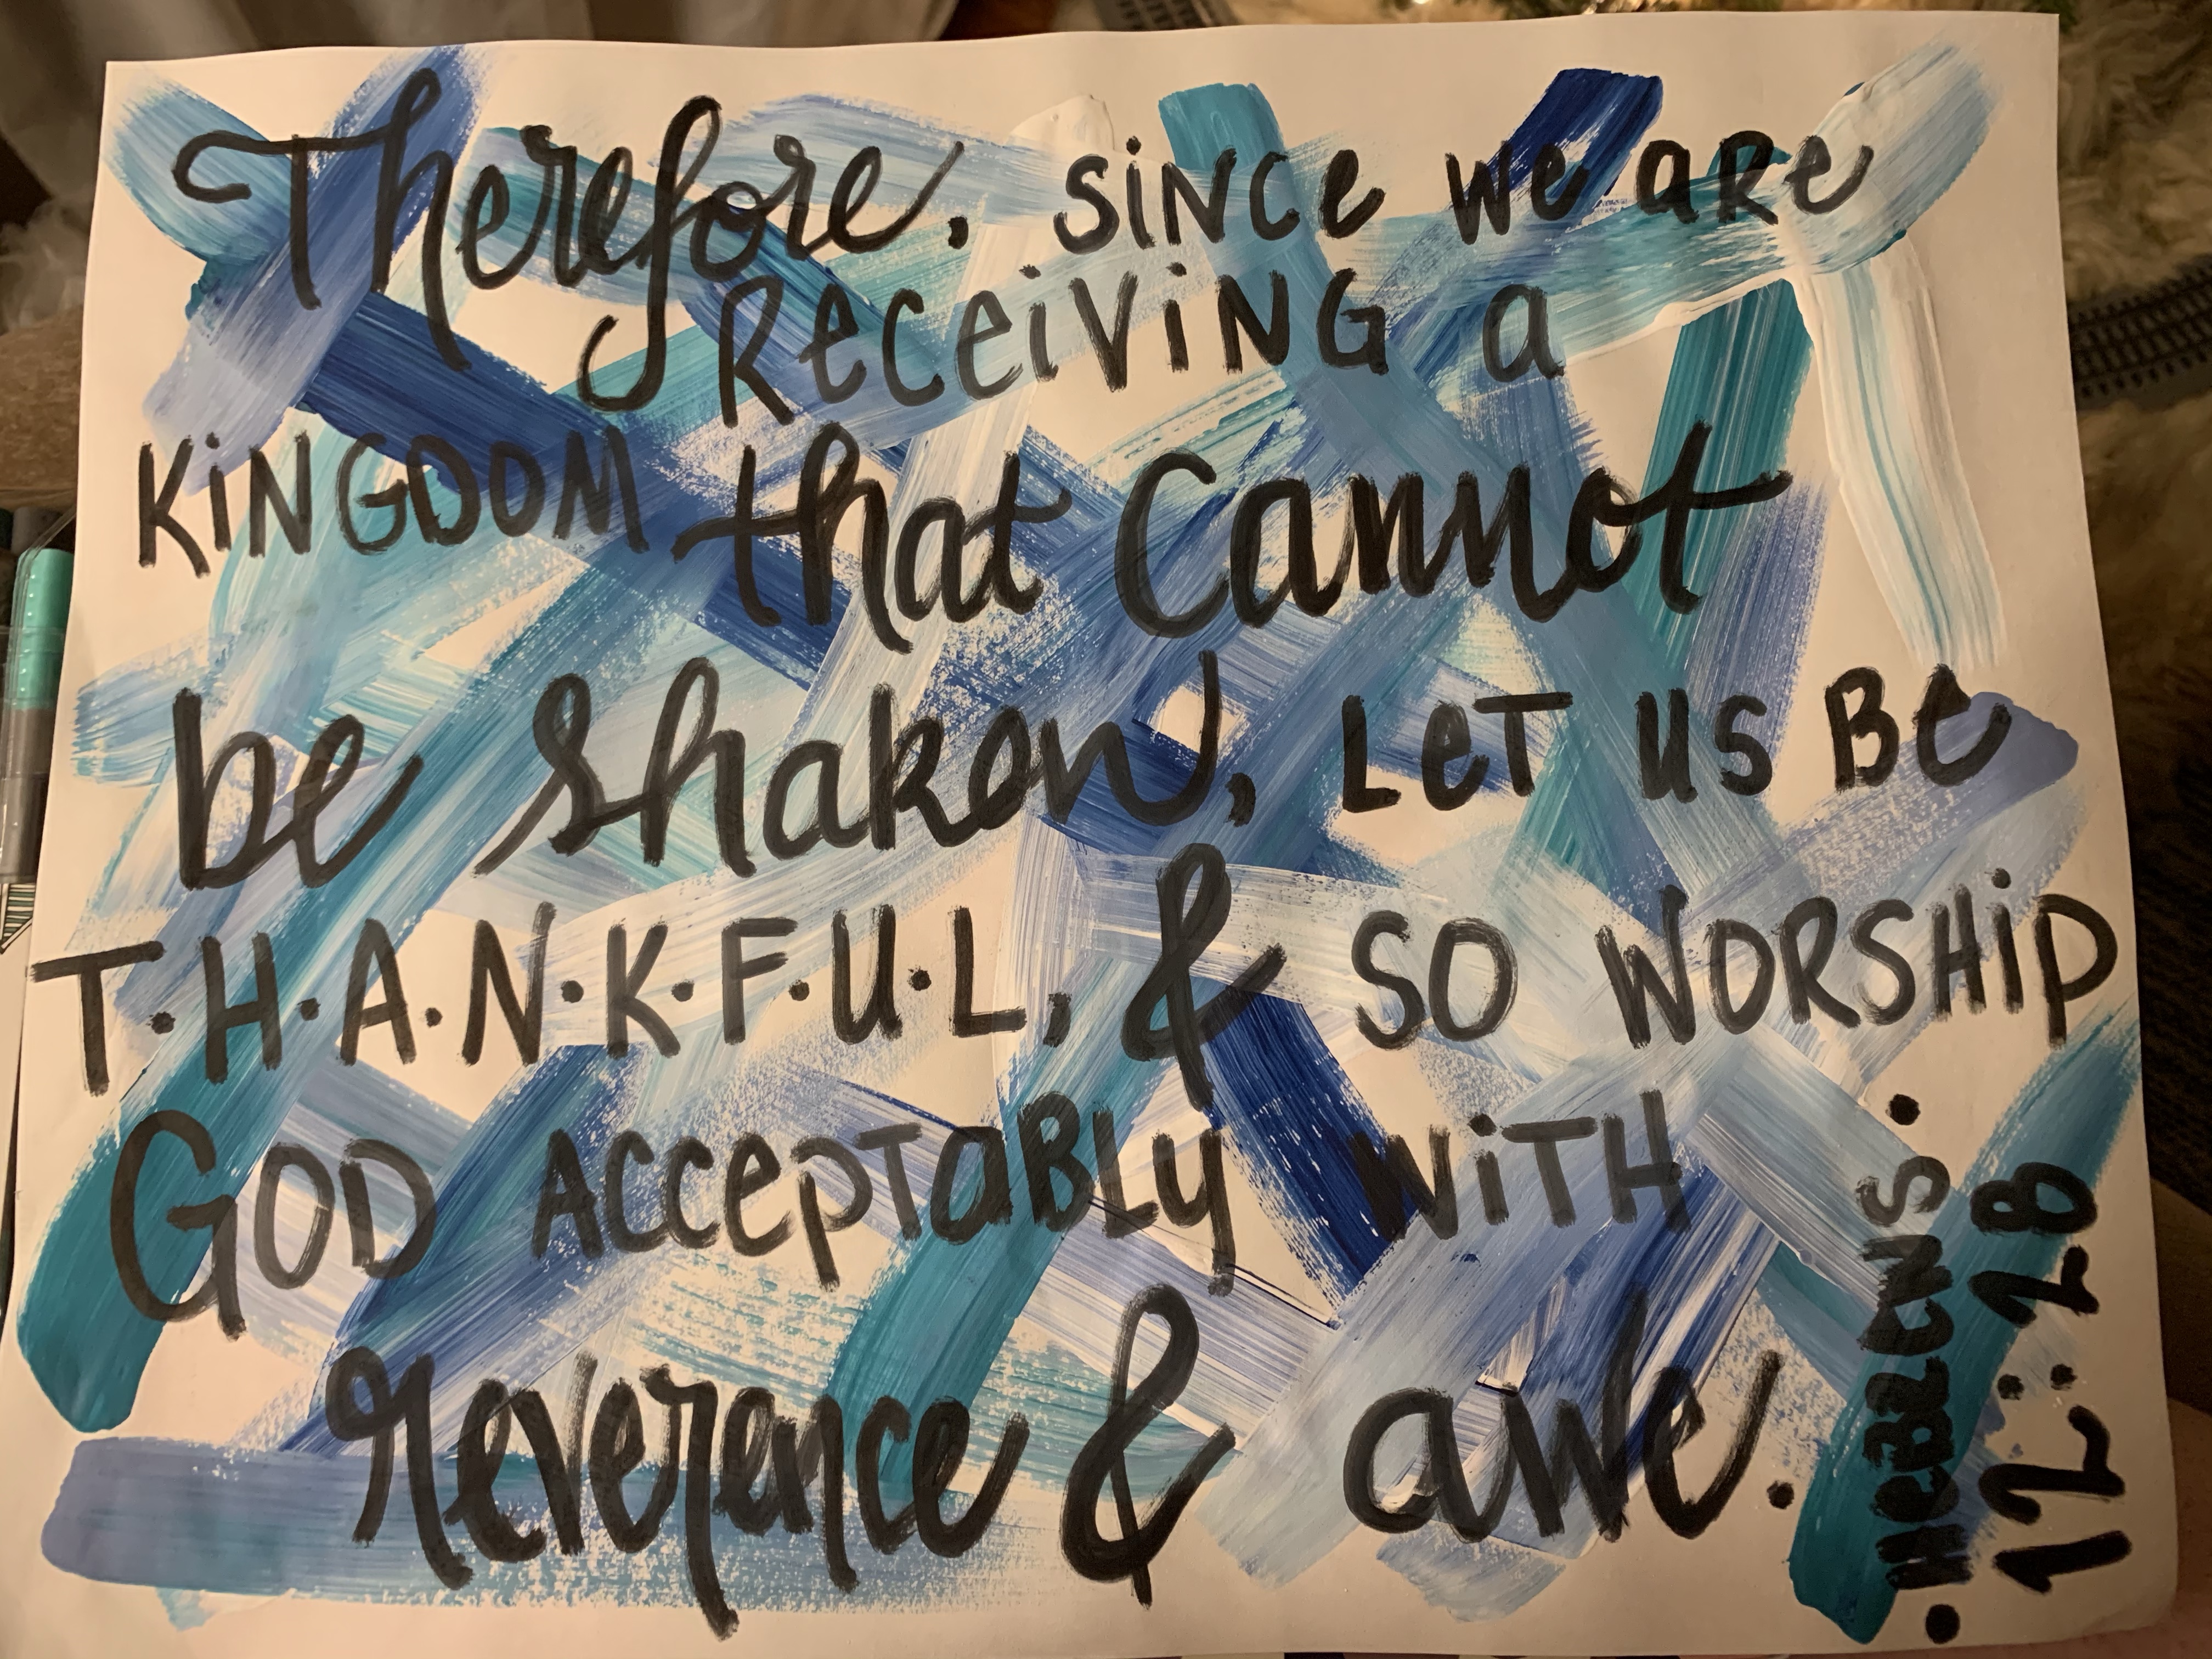 Therefore, since we are
receiving a
kingdom that cannot
be shaken, let us be
T.H.A.N.K.F.U.L, & so worship
God acceptably with
reverence & awe.
• Hebrews •
12:28